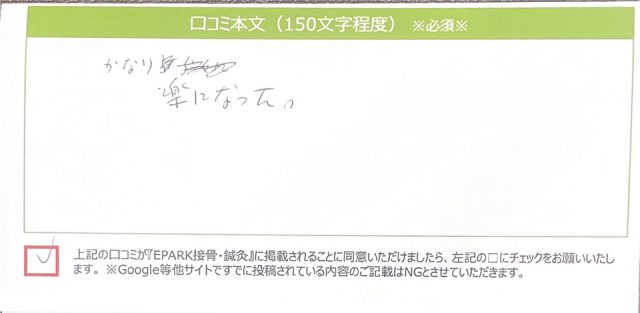 口コミ本文（150文字程度） ※必須※
かなり
楽になった。
上記の口コミが『EPARK接骨・鍼灸』に掲載されることに同意いただけましたら、左記の□にチェックをお願いいたし
ます。 ※Google等他サイトですでに投稿されている内容のご記載はNGとさせていただきます。